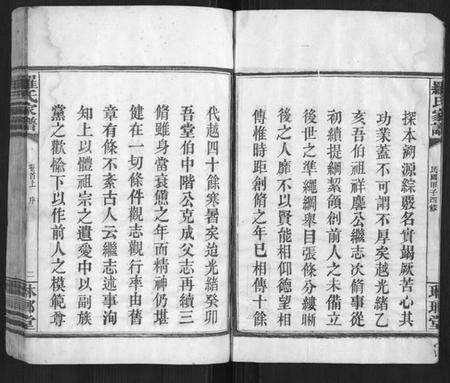 羅氏家譜
民國甲子四修
探本溯源綜嚴名實竭厥苦心其
功業蓋不可謂不厚矣越光緒乙
亥吾伯祖祥麈公繼志次脩事從
初續提綱絜領創前人之未備立
後世之準繩綱舉目張條分縷晰
後之人靡不以賢能相仰德望相
傳惟時距創脩之年已相傳十餘
代越四十餘寒暑矣迨光緒癸卯
吾堂伯中階公克成父志再續三
脩雖身當衰憊之年而精神仍堪
健在一切條件觀志觀行率由舊
章有條不紊古人云繼志述事洵
知上以體祖宗之遺愛中以副族
黨之歡愉下以作前人之模範尊
羅氏家譜
卷首上 序
二